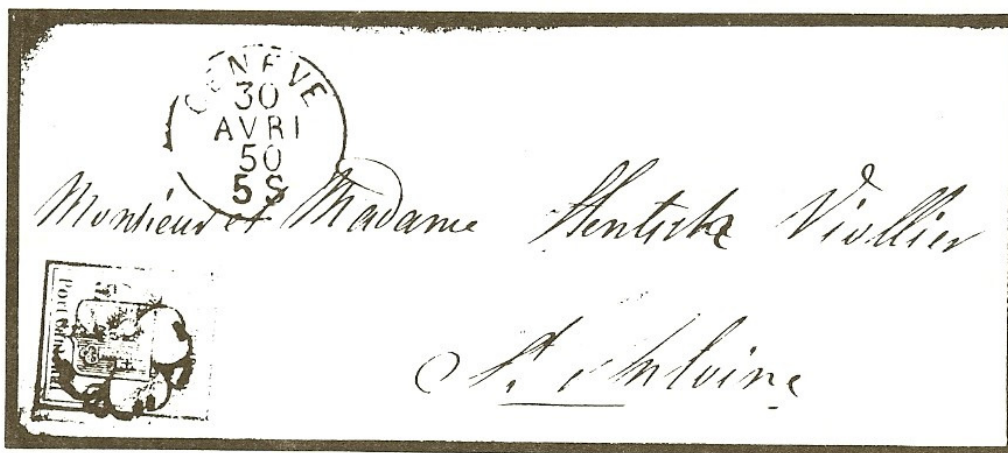 GENEVE
30
AVRI
50
5 S
Monsieur et Madame Hentsch Viollier
St. Antoine
Port